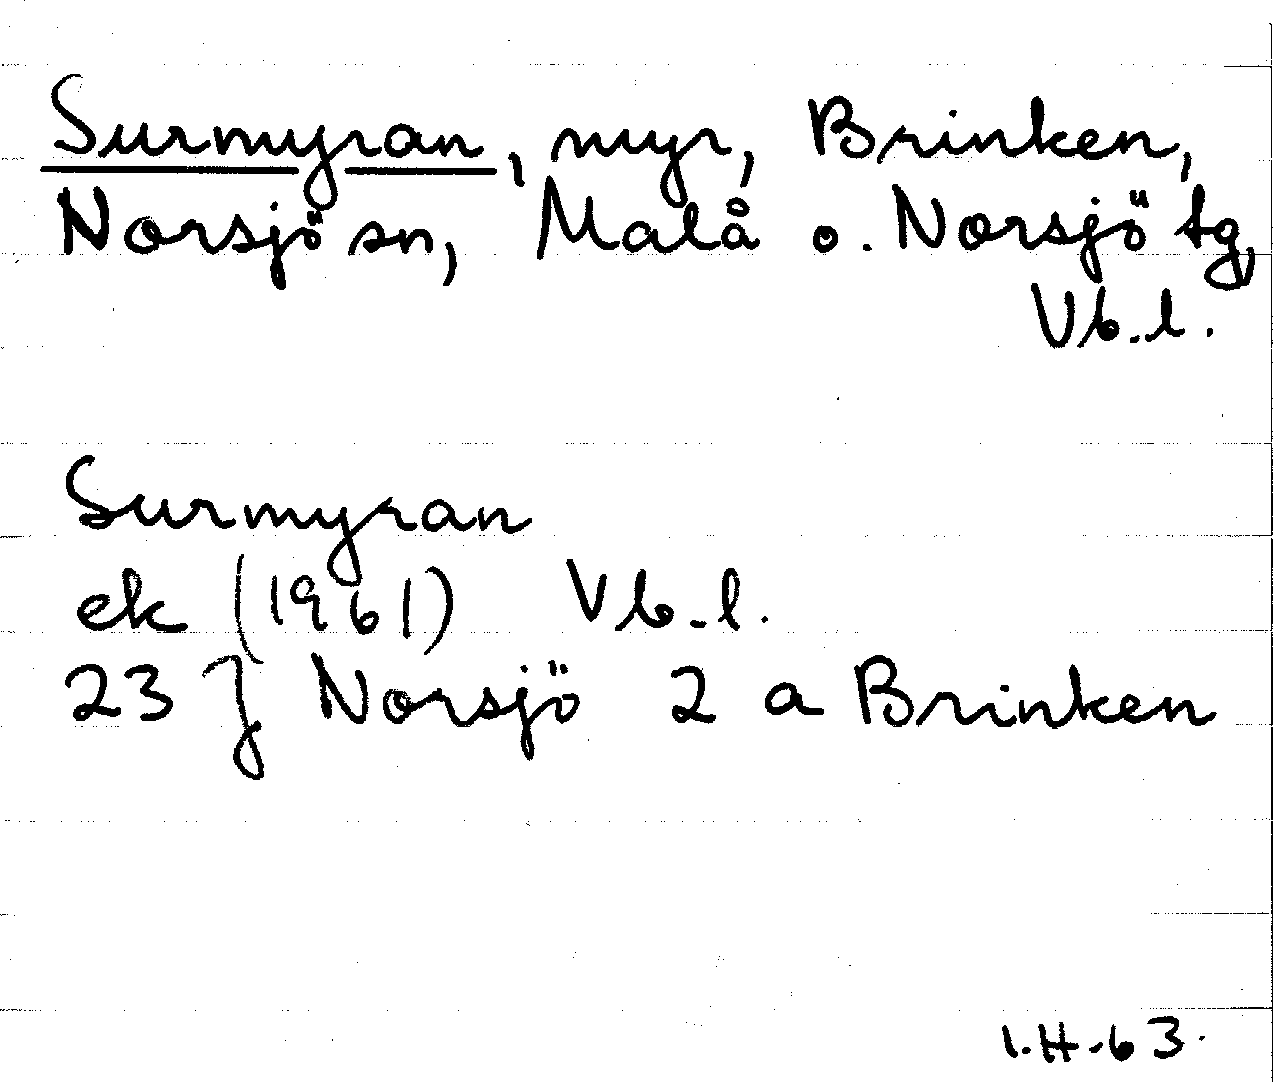 Surmyran, myr, Brinken,
Norsjö sn, Malå o. Norsjö tg,
Vb.l.
Surmyran
ek (1961) Vb.l.
23 J Norsjö 2 a Brinken
I.H.-63.